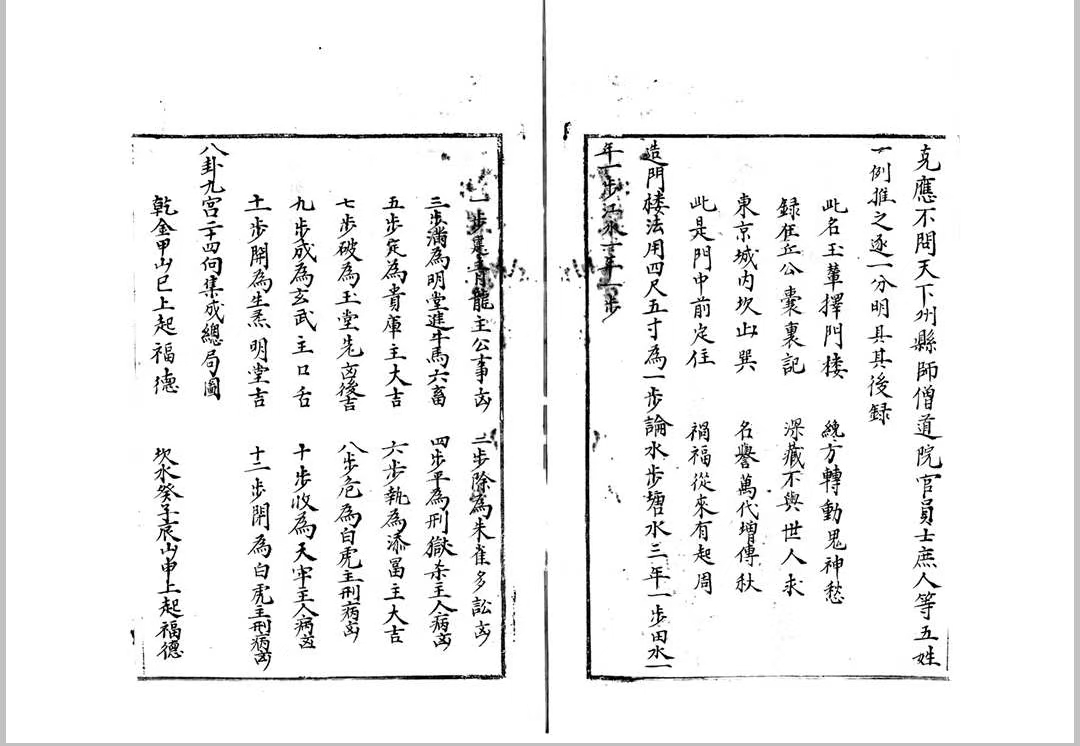 克應不問天下州縣師僧道院官員士庶人等五姓
一例推之逐一分明具其後録
此名玉輦擇門楼 纔方轉動鬼神愁
録在丘公囊裏記 深藏不與世人求
東京城内坎山巽 名譽萬代增傳秋
此是門中前定住 禍福從來有起周
造門楼法用四尺五寸為一步論水步塘水三年一步田水一
年一步江水十年一步
一步建青龍主公事凶 二步除為朱雀多訟凶
三步满為明堂進牛馬六畜 四步平為刑獄杀主人病凶
五步定為貴庫主大吉 六步執為添畐主大吉
七步破為玉堂先凶後吉 八步危為白虎主刑病凶
九步成為玄武主口舌 十步收為天牢主人病凶
十一步開為生炁明堂吉 十二步閉為白虎主刑病凶
八卦九宫二十四向集成總局圖
乾金甲山巳上起福德 坎水癸子辰山申上起福德